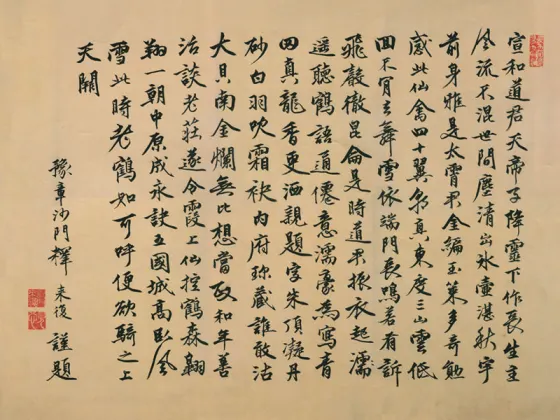 宣和道君天帝子降靈下作長生主
風流不混世間塵清出冰壺湛秋宇
前身雅是太霄君金編玉策多奇勳
感此仙禽四十翼朝真東度三山雲低
回不肯去舞雪依端門長鳴若有訴
飛聲徹昆侖是時道君振衣起濡
遥聽鶴語通僊意濡豪為寫青
田真龍香更洒親題字朱頂凝丹
砂白羽吹霜袂内府珎藏誰敢沽
大貝南金爛無比想當政和年善
治談老莊遂令霞上仙控鶴森翱
翔一朝中原成永訣五國城高卧風
雪此時老鶴如可呼便欲騎之上
天闕
豫章沙門釋来復謹題